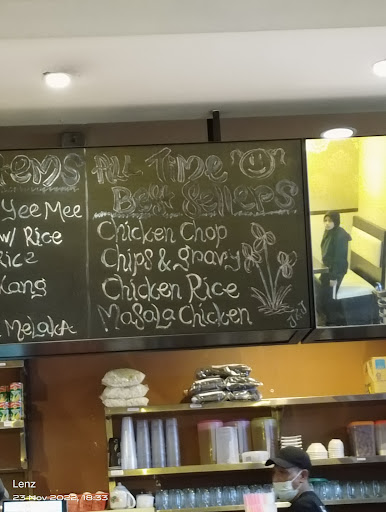 ems
Yee Mee
w/ Rice
Rice
Kang
Melaka
All Time
Best Sellers
Chicken Chop
Chips & gravy
Chicken Rice
Masala Chicken
Lenz
23 Nov 2022, 18:33